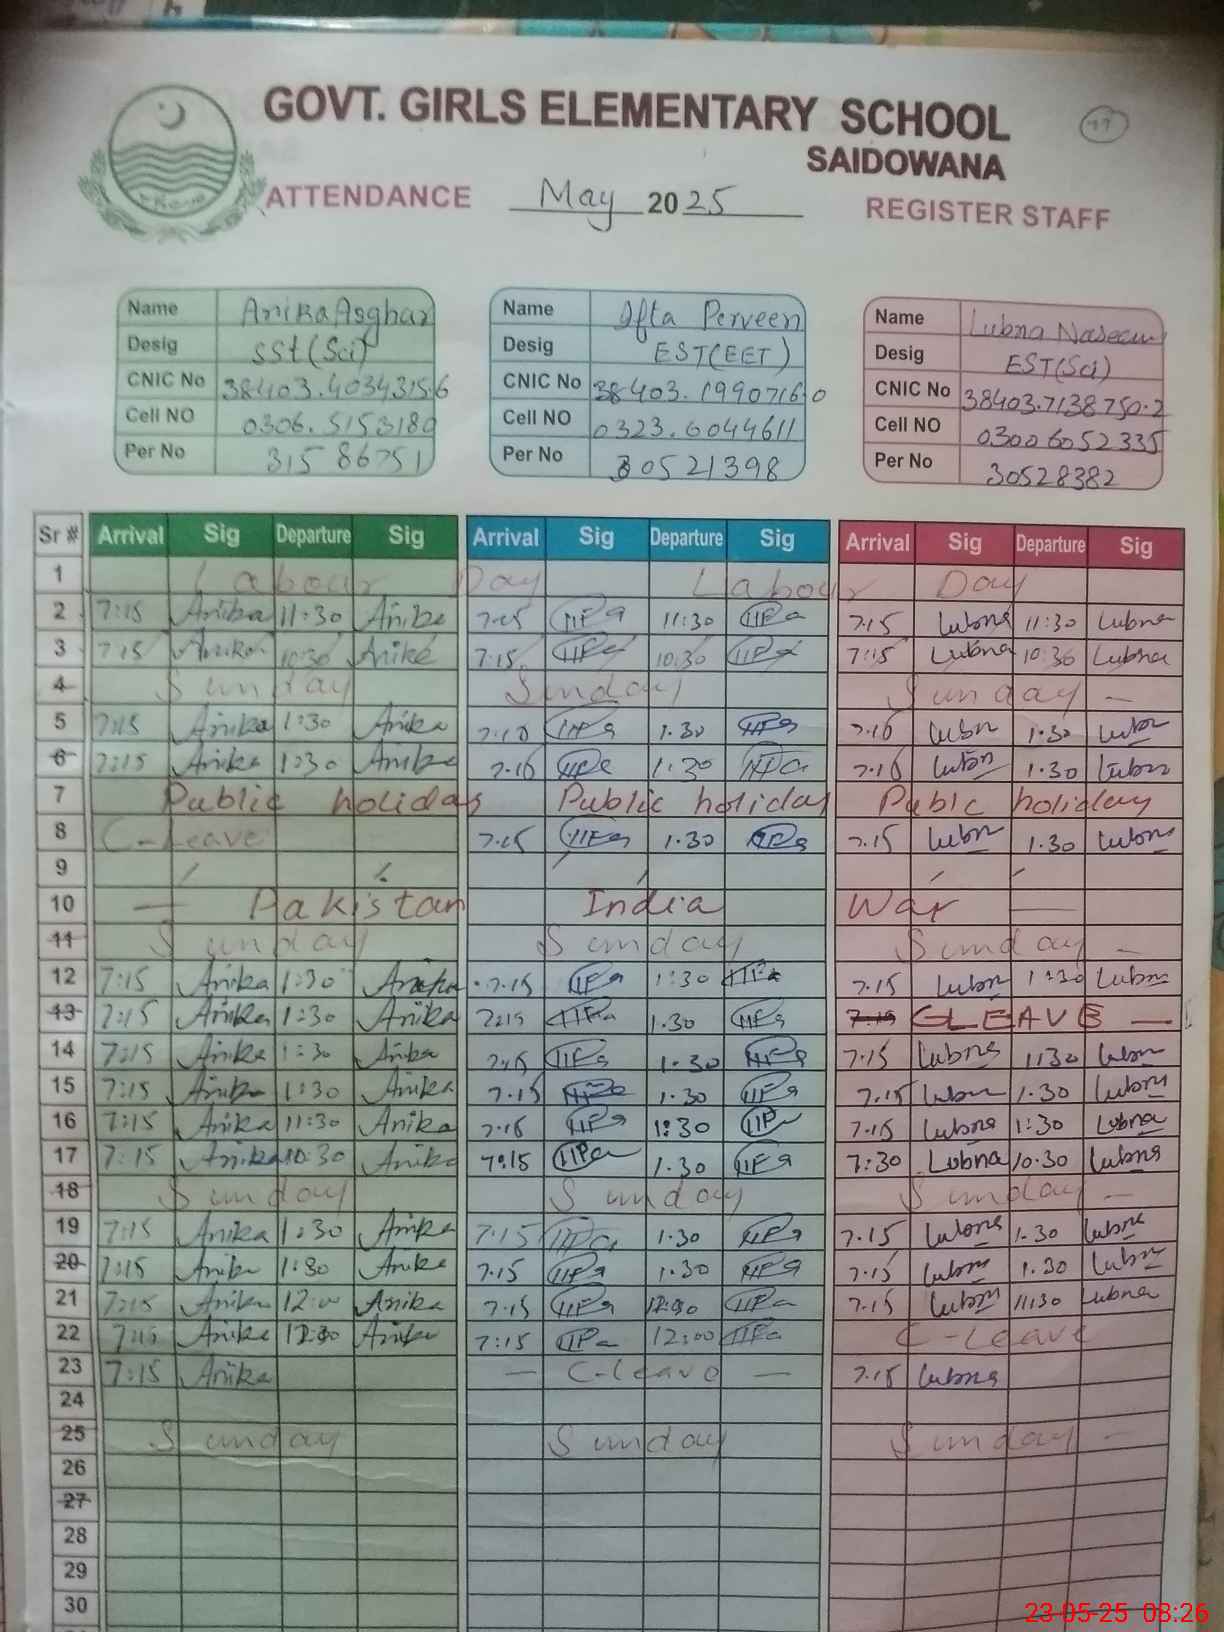 GOVT. GIRLS ELEMENTARY SCHOOL
SAIDOWANA
ATTENDANCE May 2025 REGISTER STAFF
Name Anika Asghar Name Ifta Perveen Name Lubna Naseem
Desig SSt(Sci) Desig EST(EET) Desig EST(Sci)
CNIC No 38403.4034315.6 CNIC No 38403.1990716.0 CNIC No 38403.7138750.2
Cell NO 0306.5153180 Cell NO 0323.6044611 Cell NO 03006052335
Per No 31586751 Per No 30521398 Per No 30528382
Sr # Arrival Sig Departure Sig Arrival Sig Departure Sig Arrival Sig Departure Sig
1 Labour Day Labour Day
2 7:15 Anika 11:30 Anika 7.15 11:30 7.15 Lubna 11:30 Lubna
3 7:15 Anika 10:30 Anika 7:15 10:30 7:15 Lubna 10:30 Lubna
4 Sunday Sunday Sunday -
5 7:15 Anika 1:30 Anika 7.10 1.30 7.10 Lubn 1.30 Lubn
6 7:15 Anika 1:30 Anika 7.10 1:30 7.10 Lubn 1.30 Lubn
7 Public holiday Public holiday Public holiday
8 C-Leave 7.15 1.30 7.15 Lubn 1.30 Lubna
9
10 — Pakistan India War —
11 Sunday Sunday Sunday -
12 7:15 Anika 1:30 Anika 7.15 1:30 7.15 Lubn 1:30 Lubna
13 7:15 Anika 1:30 Anika 7:15 1.30 C LEAVE —
14 7:15 Anika 1:30 Anika 7:15 1.30 7.15 Lubna 1130 Lubn
15 7:15 Anika 1:30 Anika 7.15 1.30 7.15 Lubn 1.30 Lubna
16 7:15 Anika 11:30 Anika 7.15 1:30 7.15 Lubna 1:30 Lubna
17 7:15 Anika 10:30 Anika 7:15 1.30 7:30 Lubna 10:30 Lubna
18 Sunday Sunday Sunday -
19 7:15 Anika 1:30 Anika 7.15 1.30 7.15 Lubna 1.30 Lubna
20 7:15 Anika 1:30 Anika 7.15 1.30 7.15 Lubna 1.30 Lubna
21 7:15 Anika 12:00 Anika 7.15 7.15 Lubna 11:30 Lubna
22 7:15 Anika Anika 7:15 12:00 C-Leave
23 7:15 Anika — C-Leave — 7.15 Lubna
24
25 Sunday Sunday Sunday -
26
27
28
29
30
23-05-25 08:26